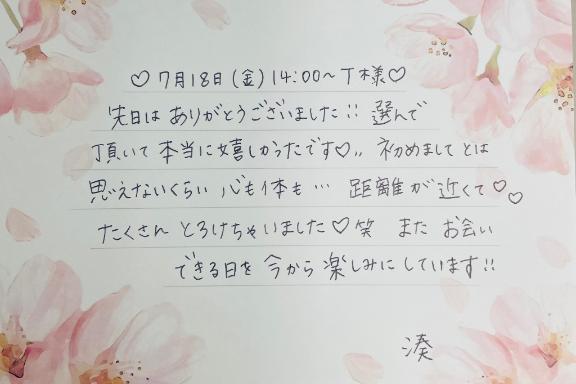 ♡7月18日(金)14:00〜T様♡
先日は ありがとうございました!! 選んで
頂いて 本当に嬉しかったです♡,, 初めまして とは
思えないくらい 心も体も… 距離が 近くて♡♡
たくさん とろけちゃいました♡笑 また お会い
できる日を 今から 楽しみに しています!!
湊